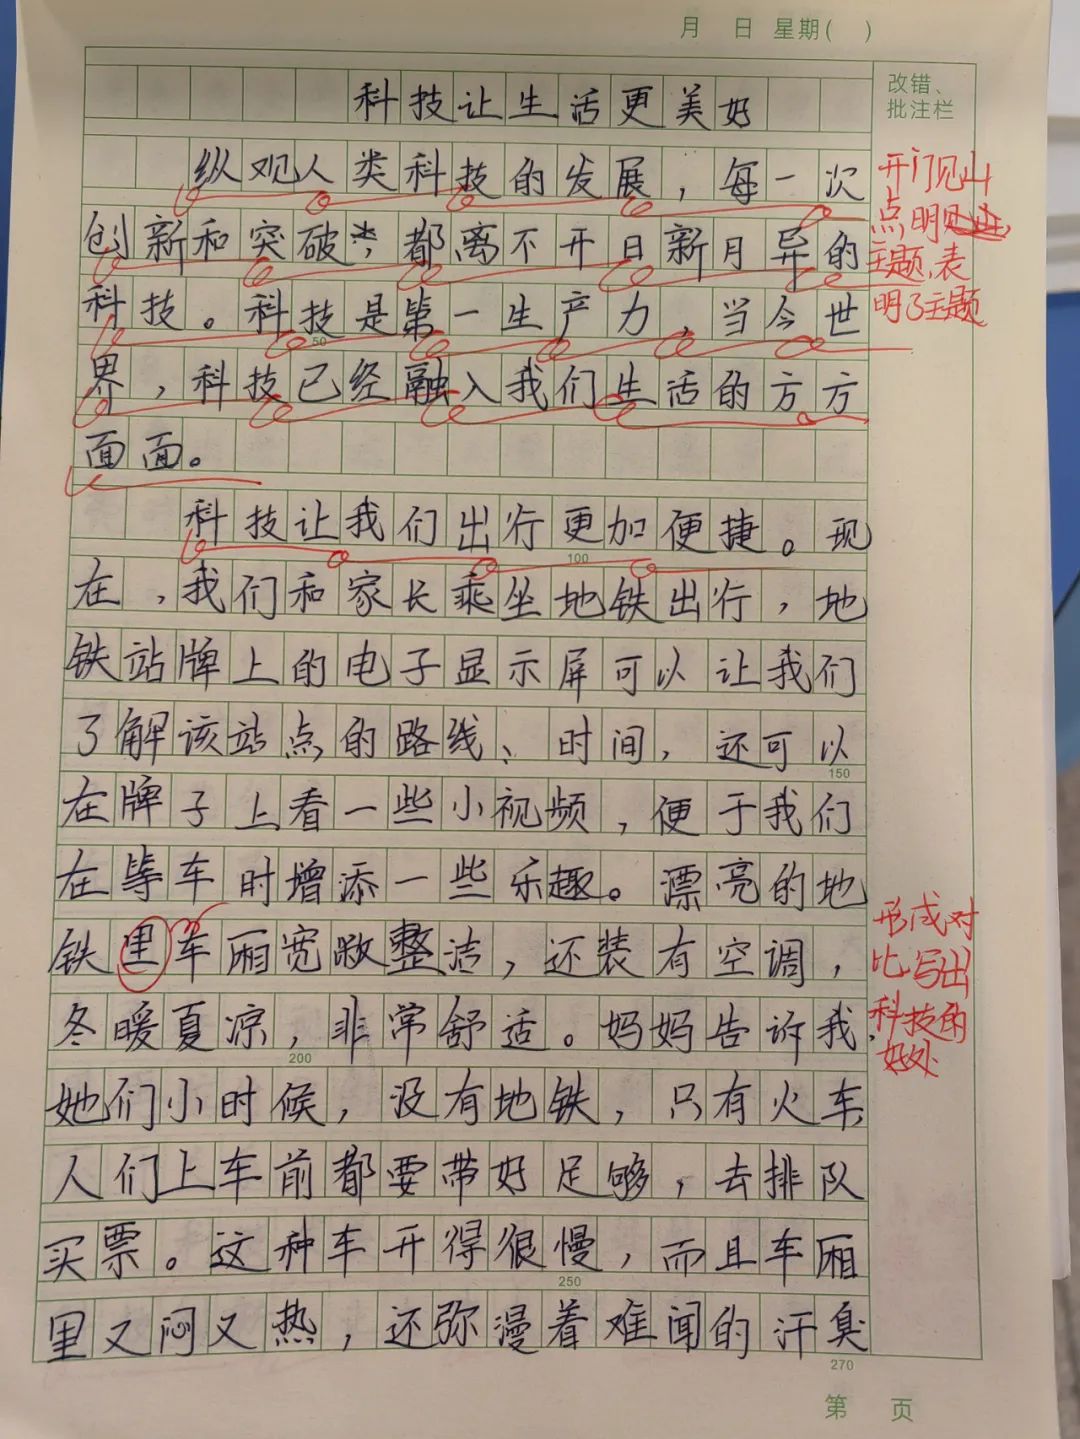 月 日 星期( )
改错、
批注栏
科技让生活更美好
纵观人类科技的发展，每一次
创新和突破，都离不开日新月异的
科技。科技是第一生产力，当今世
界，科技已经融入我们生活的方方
面面。
科技让我们出行更加便捷。现
在，我们和家长乘坐地铁出行，地
铁站牌上的电子显示屏可以让我们
了解该站点的路线、时间，还可以
在牌子上看一些小视频，便于我们
在等车时增添一些乐趣。漂亮的地
铁里车厢宽敞整洁，还装有空调，
冬暖夏凉，非常舒适。妈妈告诉我，
她们小时候，没有地铁，只有火车
人们上车前都要带好足够，去排队
买票。这种车开得很慢，而且车厢
里又闷又热，还弥漫着难闻的汗臭
50
100
150
200
250
270
开门见山
点明
主题，表
明了主题
形成对
比，写出
科技的
好处
第 页